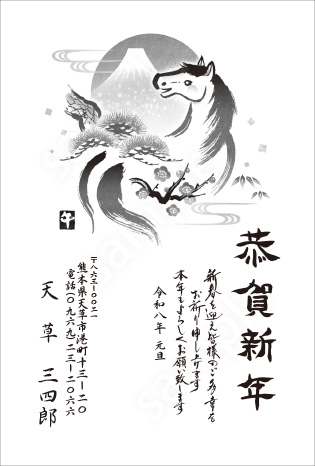 恭賀新年
新春を迎え皆様のご多幸を
お祈り申し上げます
本年もよろしくお願い致します
令和八年 元旦
〒八六三ー〇〇二一
熊本県天草市港町十三ー二〇
電話(〇九六九)二三ー二〇六六
天草 三四郎
午